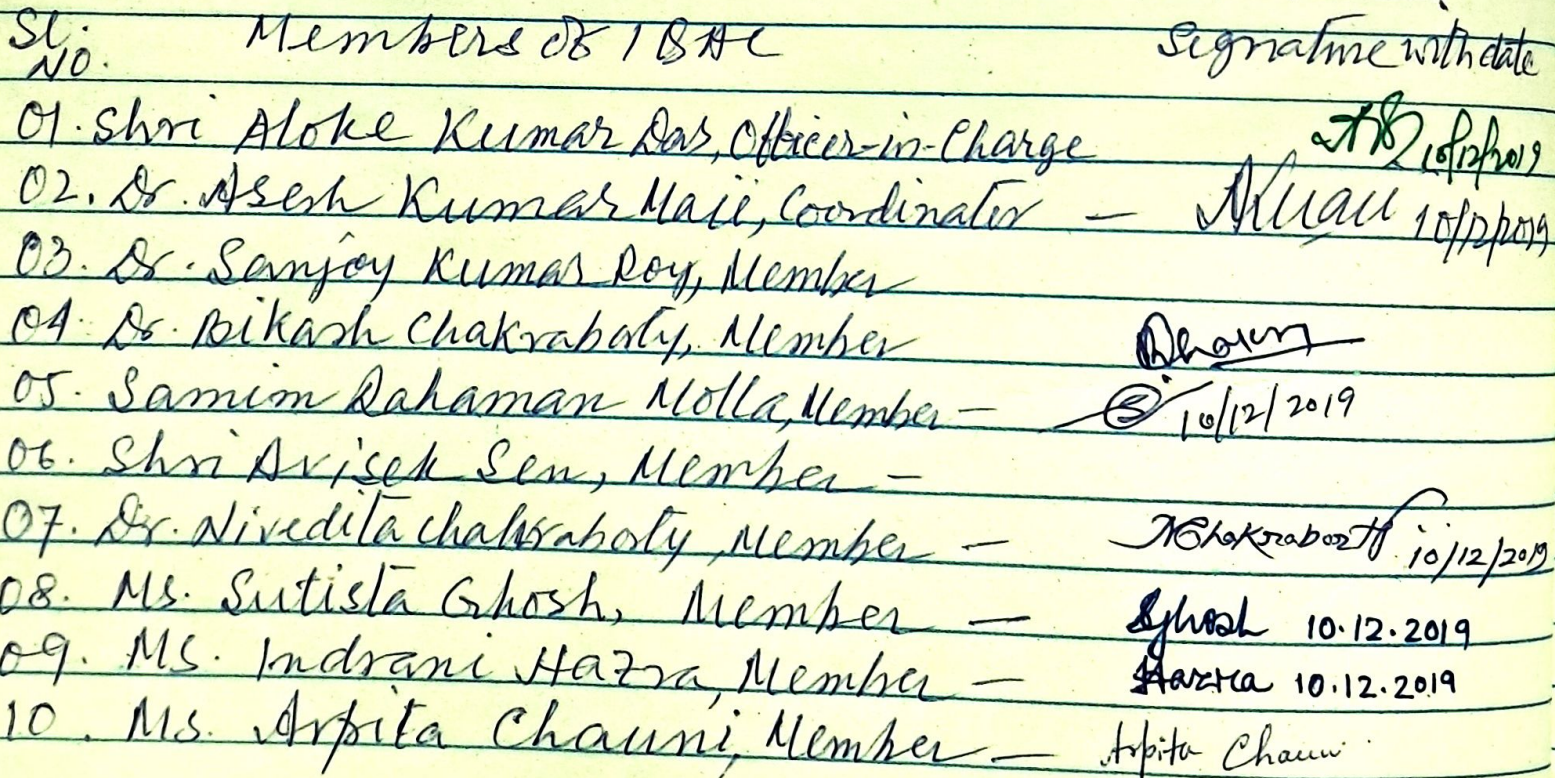 Sl. NO. Members of IQAC Signature with date
01. Shri Aloke Kumar Das, Officer-in-Charge 10/12/2019
02. Dr. Asesh Kumar Maji, Coordinator — 10/12/2019
03. Dr. Sanjoy Kumar Roy, Member
04. Dr. Bikash Chakraboty, Member
05. Samim Rahaman Molla, Member — 10/12/2019
06. Shri Avisek Sen, Member —
07. Dr. Nivedita Chakraboty, Member — NChakraborty 10/12/2019
08. Ms. Sutista Ghosh, Member — SGhosh 10.12.2019
09. Ms. Indrani Hazra, Member — Hazra 10.12.2019
10. Ms. Arpita Chauni, Member — Arpita Chauni